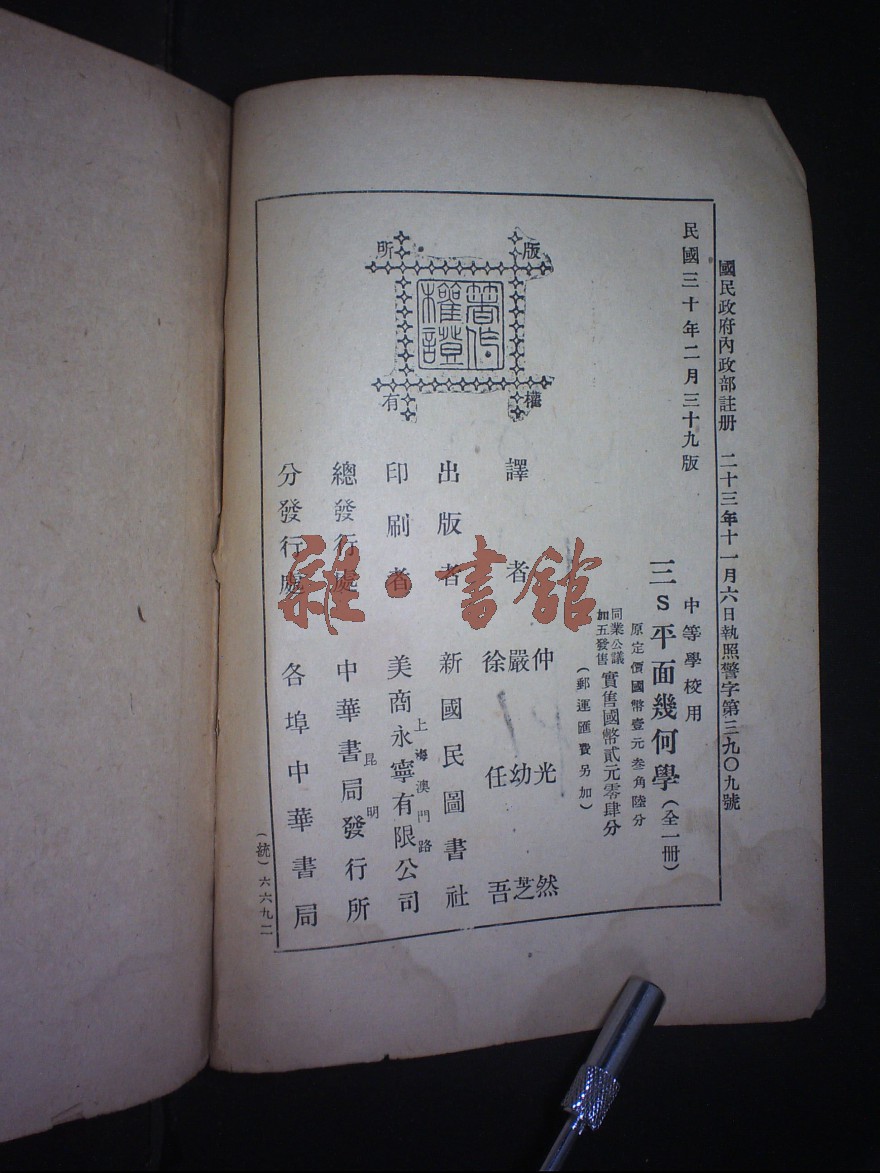 國民政府內政部註册 二十三年十一月六日執照警字第三九〇九號
民國三十年二月三十九版
中等學校用
三S平面幾何學(全一册)
原定價國幣壹元叁角陸分
同業公議加五發售 實售國幣貳元零肆分
(郵運匯費另加)
譯者 仲光然
嚴幼芝
徐任吾
出版者 新國民圖書社
印刷者 上海澳門路 美商永寧有限公司
總發行處 昆明 中華書局發行所
分發行處 各埠中華書局
版權所有
著作權證
(統)六六九二
雜·書館